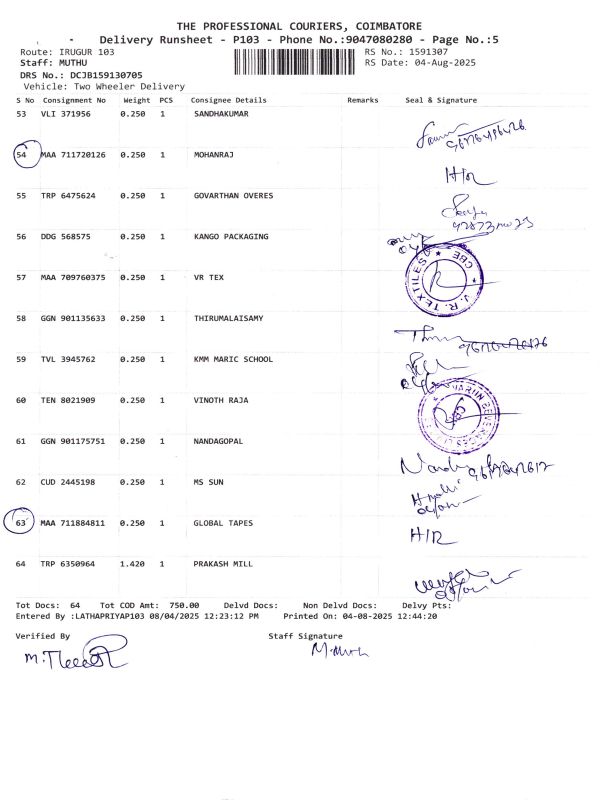 THE PROFESSIONAL COURIERS, COIMBATORE
- Delivery Runsheet - P103 - Phone No.:9047080280 - Page No.:5
Route: IRUGUR 103 RS No.: 1591307
Staff: MUTHU RS Date: 04-Aug-2025
DRS No.: DCJB159130705
Vehicle: Two Wheeler Delivery
S No Consignment No Weight PCS Consignee Details Remarks Seal & Signature
53 VLI 371956 0.250 1 SANDHAKUMAR
54 MAA 711720126 0.250 1 MOHANRAJ
H/R
55 TRP 6475624 0.250 1 GOVARTHAN OVERES
56 DDG 568575 0.250 1 KANGO PACKAGING
57 MAA 709760375 0.250 1 VR TEX
J.R. TEXTILES CBE
58 GGN 901135633 0.250 1 THIRUMALAISAMY
59 TVL 3945762 0.250 1 KMM MARIC SCHOOL
60 TEN 8021909 0.250 1 VINOTH RAJA
VARUN BEVERAGES
61 GGN 901175751 0.250 1 NANDAGOPAL
62 CUD 2445198 0.250 1 MS SUN
63 MAA 711884811 0.250 1 GLOBAL TAPES
H/R
64 TRP 6350964 1.420 1 PRAKASH MILL
Tot Docs: 64 Tot COD Amt: 750.00 Delvd Docs: Non Delvd Docs: Delvy Pts:
Entered By :LATHAPRIYAP103 08/04/2025 12:23:12 PM Printed On: 04-08-2025 12:44:20
Verified By Staff Signature